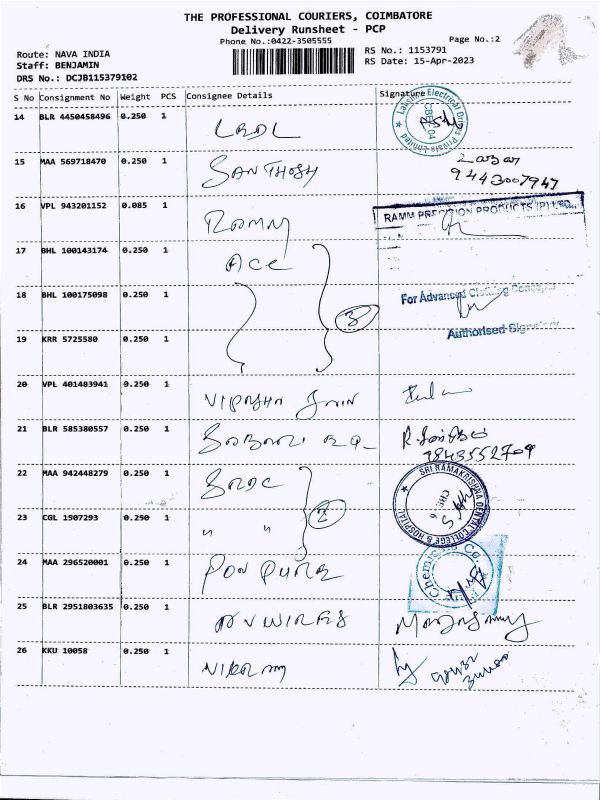 THE PROFESSIONAL COURIERS, COIMBATORE
Delivery Runsheet - PCP
Phone No.:0422-3505555
Page No.:2
Route: NAVA INDIA
RS No.: 1153791
Staff: BENJAMIN
RS Date: 15-Apr-2023
DRS No.: DCJB115379102
S No Consignment No Weight PCS Consignee Details Signature
14 BLR 4450458496 0.250 1 LRDL
Lakshmi Electrical Drives Private Limited
CBE-04
15 MAA 569718470 0.250 1 SANTHOSH
9443007947
16 VPL 943201152 0.085 1
RAMM PRECISION PRODUCTS (P) LTD.,
17 BHL 100143174 0.250 1 ACC
18 BHL 100175098 0.250 1
3
For Advanced Clothing Concepts
19 KRR 5725580 0.250 1
Authorised Signatory
20 VPL 401483941 0.250 1
21 BLR 585380557 0.250 1
9843552709
22 MAA 942448279 0.250 1 SRDC
SRI RAMAKRISHNA DENTAL COLLEGE & HOSPITAL
CBE-6
23 CGL 1507293 0.250 1 " "
2
24 MAA 296520001 0.250 1 PON PURE
Chemicals Co.
25 BLR 2951803635 0.250 1
26 KKU 10058 0.250 1